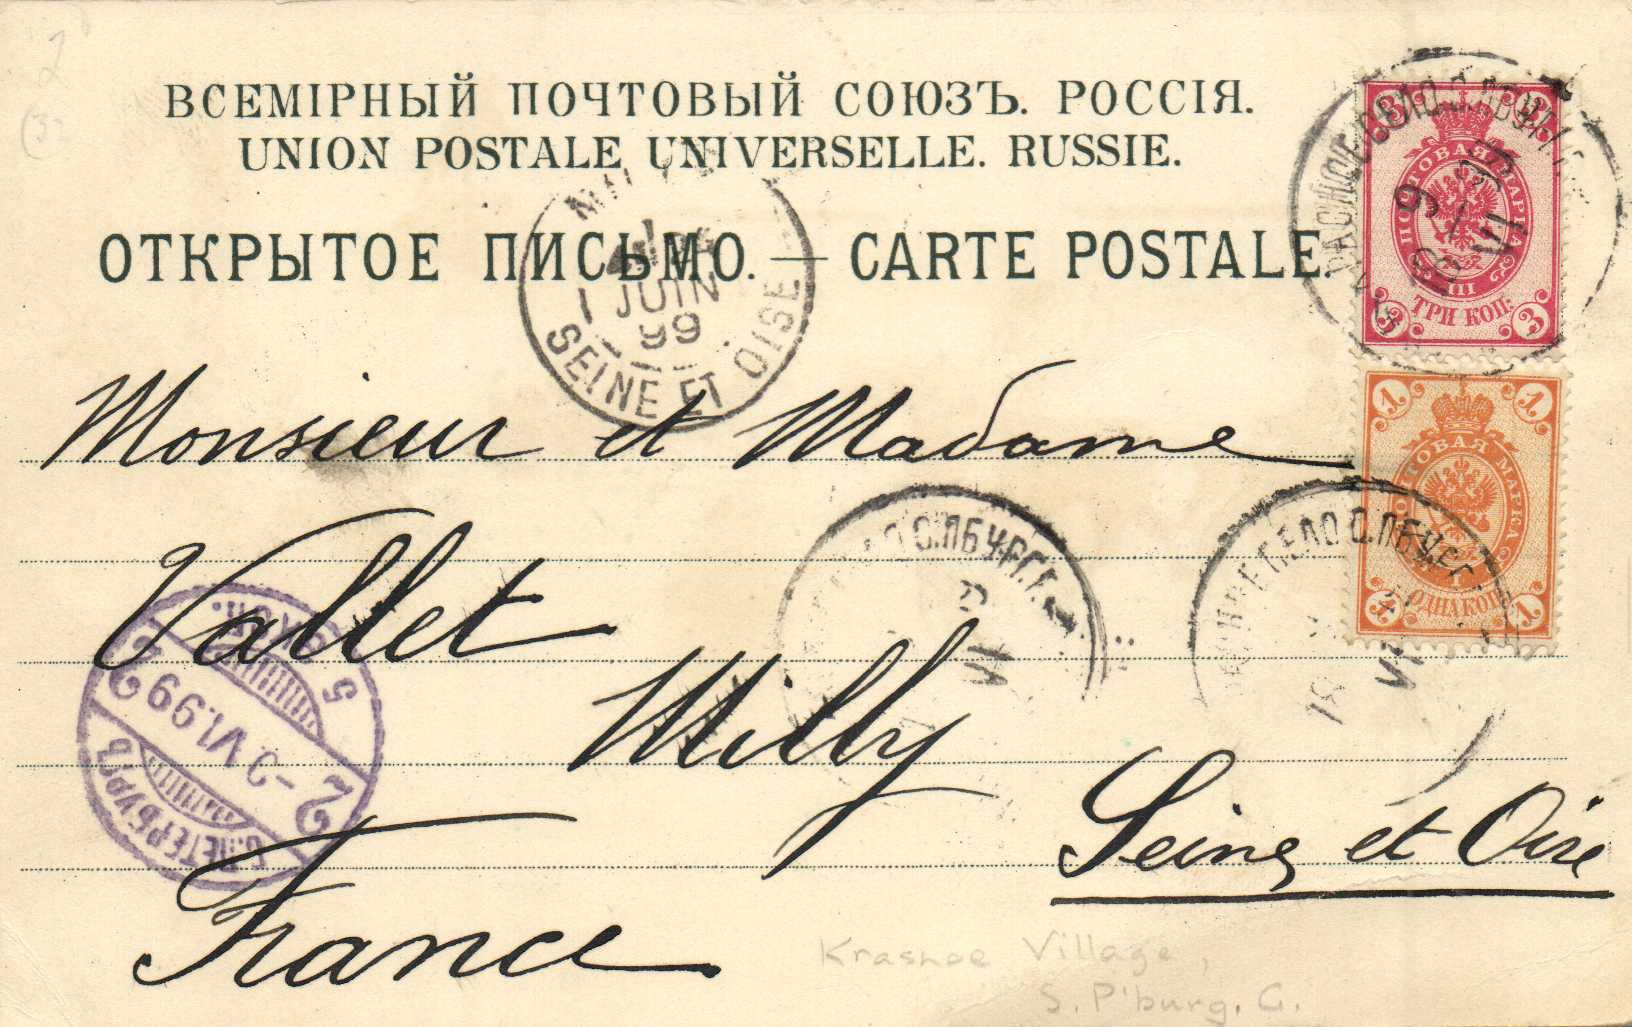 ВСЕМІРНЫЙ ПОЧТОВЫЙ СОЮЗЪ. РОССІЯ.
UNION POSTALE UNIVERSELLE. RUSSIE.
ОТКРЫТОЕ ПИСЬМО. — CARTE POSTALE.
3 3
ПОЧТОВАЯ МАРКА
III
ТРИ КОП.
3 3
1 JUIN
99
SEINE ET OISE
Monsieur et Madame
1 1
ПОЧТОВАЯ МАРКА
ОДНА КОП.
1 1
СЕЛО С.ПБУРГ.
VI
СЕЛО С.ПБУРГ.
VI
Vallet
Milly
2 -5 VI.99 2
С.ПЕТЕРБУРГЪ
5
Seine et Oise
France
Krasnoe Village,
S. P'burg. G.